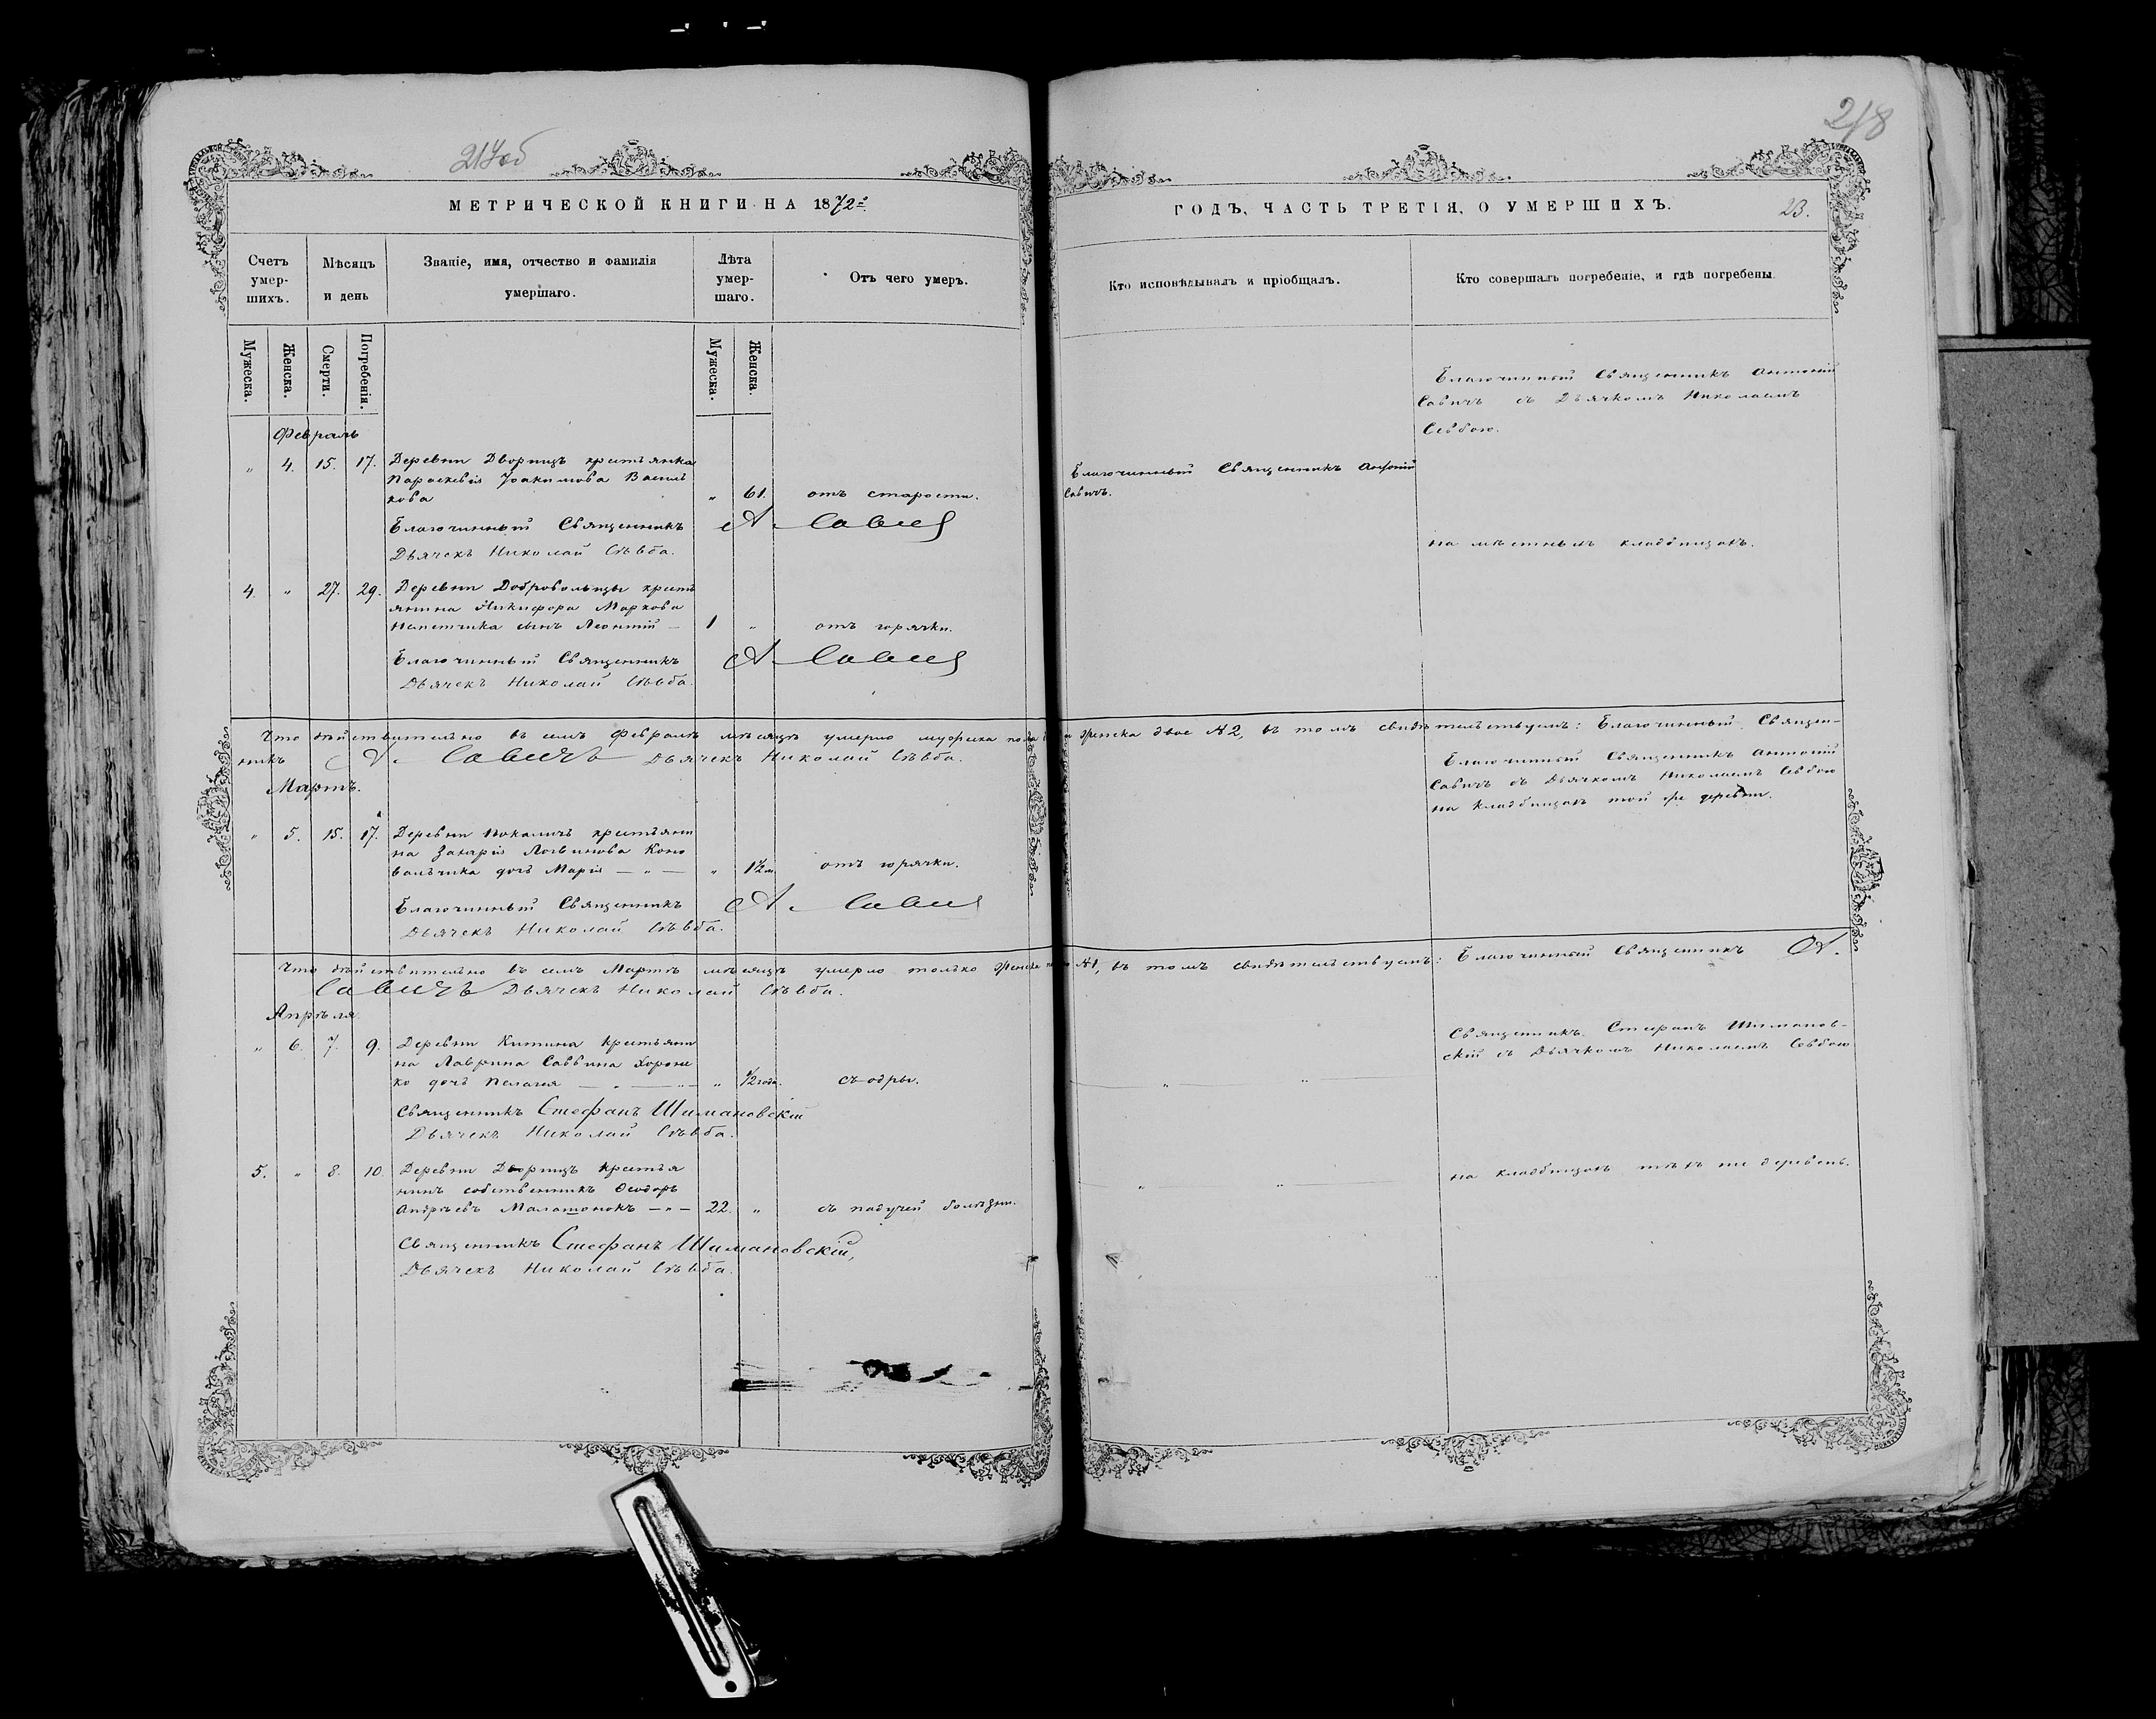 217об
218
МЕТРИЧЕСКОЙ КНИГИ НА 1872й
ГОДЪ, ЧАСТЬ ТРЕТІЯ, О УМЕРШИХЪ.
23.
Счетъ умер-шихъ.
Мѣсяцъ и день
Званіе, имя, отчество и фамилія умершаго.
Лѣта умер-шаго.
Отъ чего умеръ.
Кто исповѣдывалъ и пріобщалъ.
Кто совершалъ погребеніе, и гдѣ погребены
Мужеска.
Женска.
Смерти.
Погребенія.
Мужеска.
Женска.
Благочинный Священникъ Антоній
Савичъ съ Дьячкомъ Николаемъ
Февраль
" 4. 15. 17. Деревни Дворищъ крестьянка
Параскевія Іоакимова Василь
кова " 61. отъ старости.
Благочинный Священникъ Антоній
Савичъ.
Благочинный Священникъ А. Савич
Дьячекъ Николай Сѣвба.
на мѣстныхъ кладбищахъ.
4. " 27. 29. Деревни Добровольщы крестъ
янина Никифора Маркова
сынъ Леонтій — 1 " отъ горячки.
Благочинный Священникъ А. Савич
Дьячекъ Николай Сѣвба.
Что дѣйствительно въ семъ Февралѣ мѣсяцѣ умерло мужеска пола женска двое №2, въ томъ свидѣтельствуемъ: Благочинный Священ-
никъ А. Савичъ Дьячекъ Николай Сѣвба.
Благочинный Священникъ Антоній
Савичъ съ Дьячкомъ Николаемъ Сѣвбою
на кладбищахъ той же деревни.
Мартъ.
" 5. 15. 17. Деревни крестьяни
на Захарія Логвинова Коно
вальчика дочь Марія — " — " 1½ м. отъ горячки.
Благочинный Священникъ А. Савич
Дьячекъ Николай Сѣвба.
Что дѣйствительно въ семъ Мартѣ мѣсяцѣ умерло только женска №1, въ томъ свидѣтельствуемъ: Благочинный Священникъ А.
Савичъ Дьячекъ Николай Сѣвба.
Апрѣля.
" 6. 7. 9. Деревни Китина крестьяни
на Лаврина Саввина Хороше
ко дочь Пелагея — " — " ½ года. съ одры.
Священникъ Стефанъ Шиманов-
скій съ Дьячкомъ Николаемъ Сѣвбою
Священникъ Стефанъ Шимановскій
Дьячекъ Николай Сѣвба.
5. " 8. 10. Деревни Дворищъ крестья
нинъ собственникъ Ѳеодоръ
Андреевъ Малашонокъ — " — 22. " съ падучей болѣзни.
на кладбищахъ тѣхъ же деревень.
Священникъ Стефанъ Шимановскій,
Дьячекъ Николай Сѣвба.